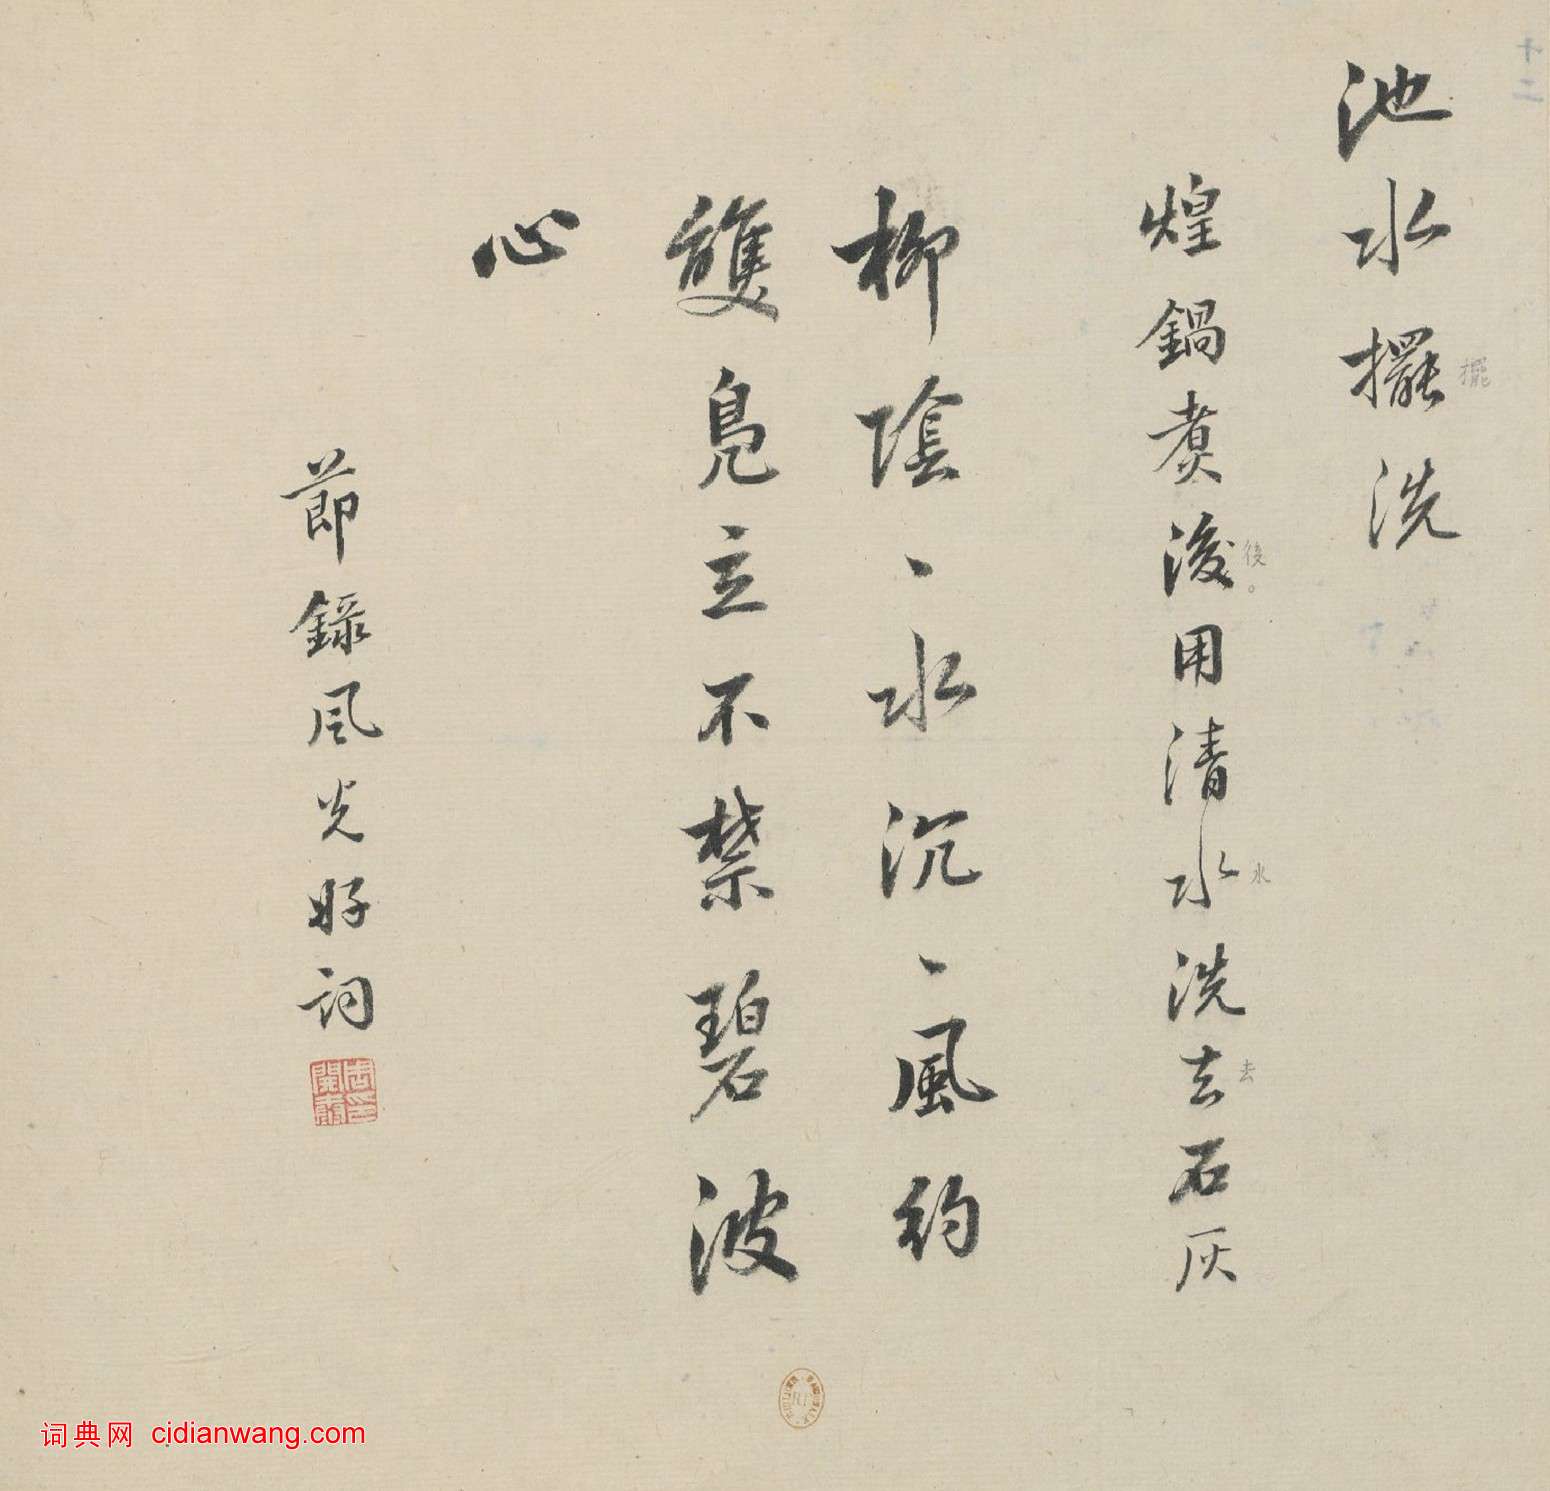 十二
池水擺洗
擺
煌鍋煮後用清水洗去石灰
後。
水
去
柳陰丶水沉丶風約
雙鳧立不禁碧波
心
節錄風光好詞
词典网 cidianwang.com